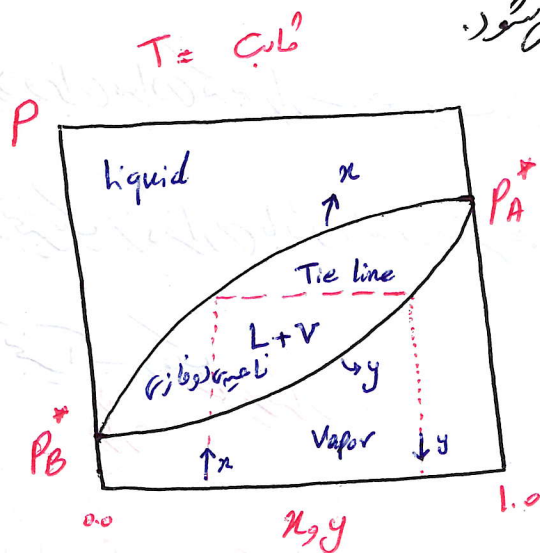 میشود.
T = ثابت
P
Liquid
x
P_A*
Tie line
L+V
ناحیه دوفازی
y
P_B*
x
Vapor
y
0.0
x,y
1.0